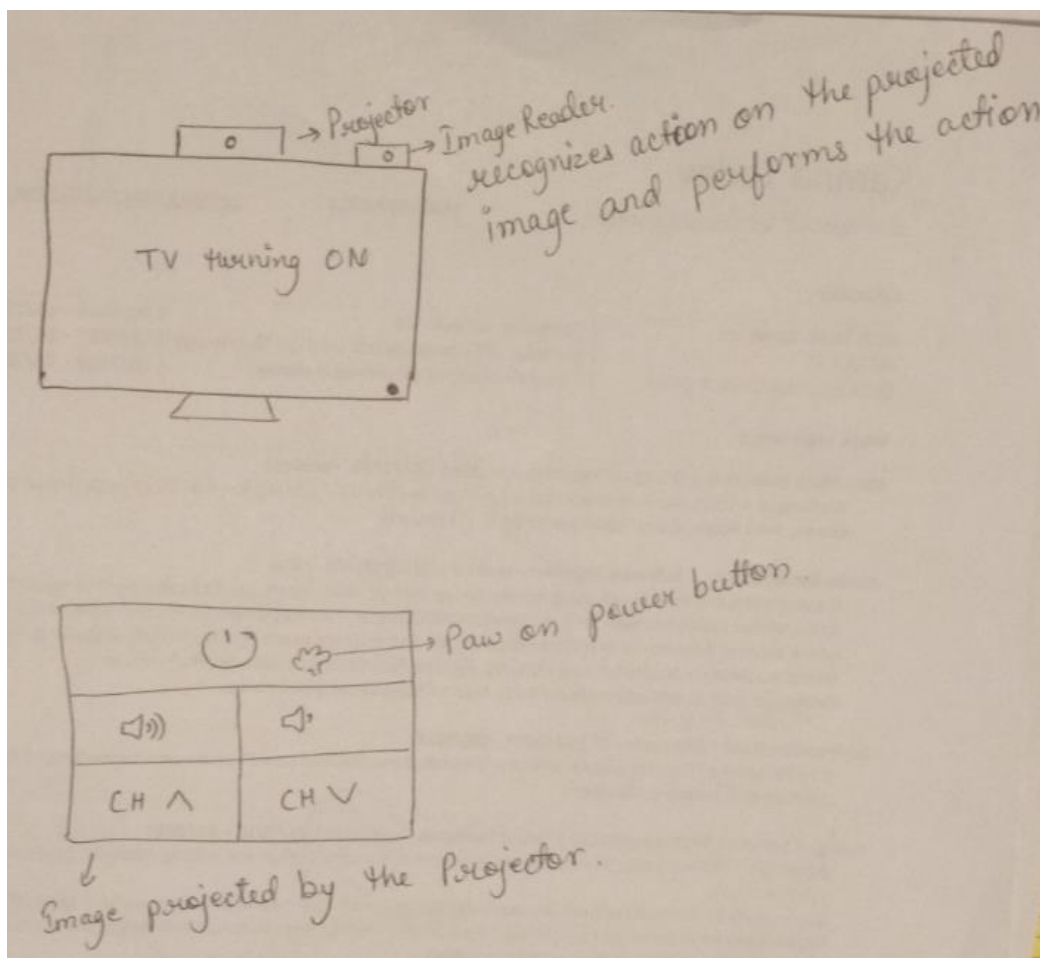 Projector
Image Reader.
recognizes action on the projected
image and performs the action
TV turning ON
Paw on power button
CH ∧
CH ∨
Image projected by the Projector.